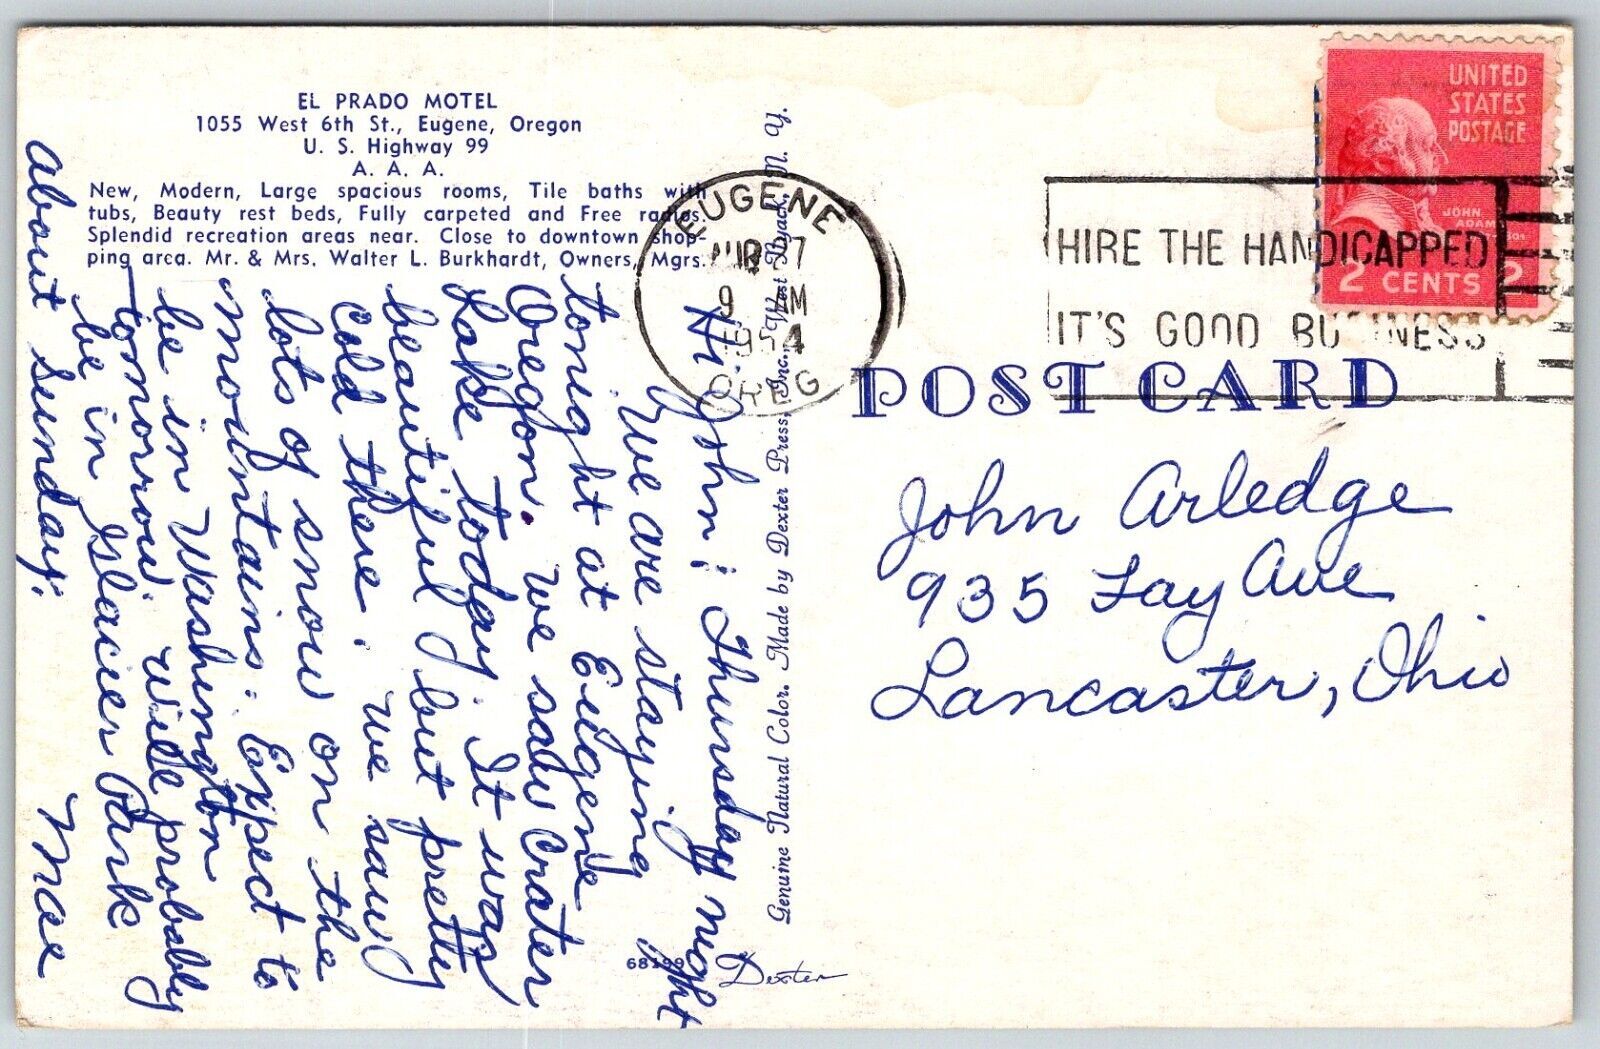 EL PRADO MOTEL
1055 West 6th St., Eugene, Oregon
U. S. Highway 99
A. A. A.
New, Modern, Large spacious rooms, Tile baths with
tubs, Beauty rest beds, Fully carpeted and Free radios.
Splendid recreation areas near. Close to downtown shop-
ping area. Mr. & Mrs. Walter L. Burkhardt, Owners, Mgrs.
Hi John; Thursday night
We are staying
tonight at Eugene
Oregon. We saw Crater
Lake today. It was
beautiful but pretty
cold there. We saw
lots of snow on the
mountains. Expect to
be in Washington
tomorrow. Will probably
be in Glacier Park
about Sunday.
Mae
68199
Dexter
Genuine Natural Color. Made by Dexter Press, Inc., West Nyack, N. Y.
EUGENE
7
9 AM
1954
OREG
HIRE THE HANDICAPPED
IT'S GOOD BUSINESS
UNITED
STATES
POSTAGE
JOHN
ADAMS
2 CENTS 2
POST CARD
John Arledge
935 Fay Ave
Lancaster, Ohio